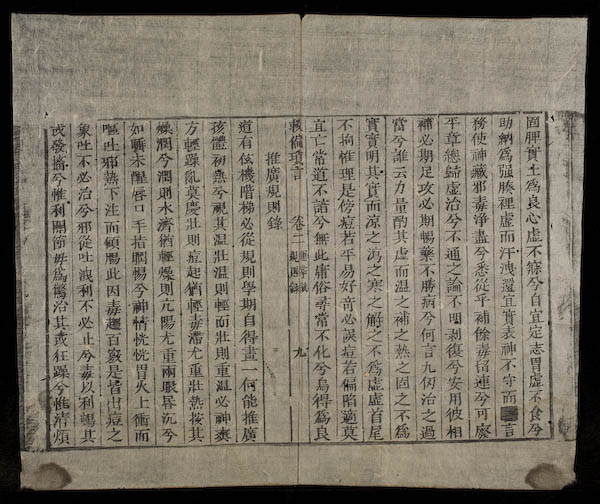 固脾實土爲良心虛不寐兮自宜定志胃虛不食兮
助納爲强腠裡虛而汗洩還宜實表神不守而言
務使神藏邪毒淨盡兮悉從乎補餘毒留連兮可廢
平章總歸虛治兮不通之論不問剥復兮安用彼相
補必期足攻必期暢藥不勝病兮何言九仞治之過
當兮誰云力量酌其虛而溫之補之熱之固之不爲
實實明其實而凉之瀉之寒之解之不爲虛虛首尾
不拘惟理是傍痘若平易好奇必誤痘若偏陷適莫
宜亡常道不諳兮無此庸俗尋常不化兮烏得爲良
救偏瑣言 卷二 九
推廣規則錄
道有機階梯必從規則學期自得畫一何能推廣
孩體初熱兮視其温壯温則輕而壯則重温必神爽
方輕躁亂莫慶壯則痘起猶輕毒滯尤重壯熱按其
燥潤兮潤則水濟猶輕燥則亢陽尤重兩眼昏沉兮
如醉未醒唇口兮神情恍恍胃火上衝而
嘔吐邪熱下注而傾腸此因毒趨百竅是皆出痘之
象吐不必治兮邪從吐洩利不必止兮毒以利暢其
或發搐兮惟利關節毋爲驚治其或狂躁兮惟清煩